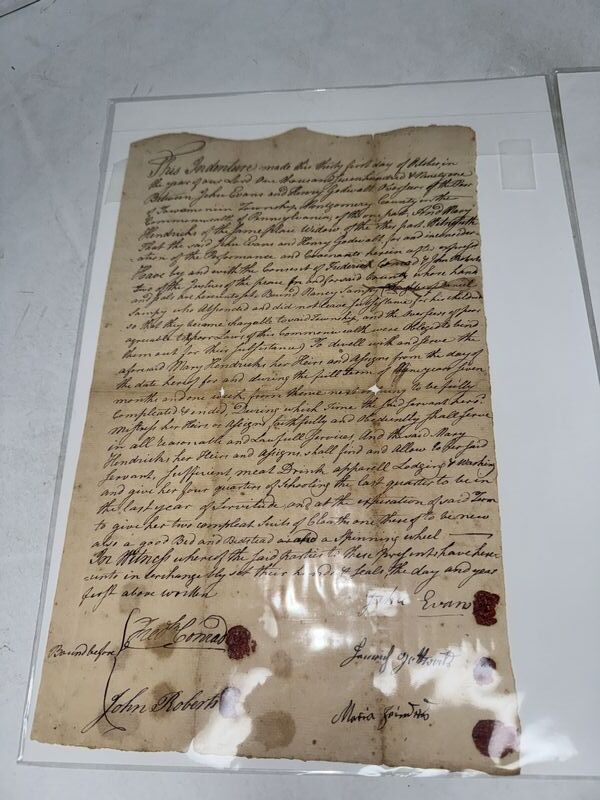 This Indenture made this thirty first day of October in
the year of our Lord One thousand Seven hundred & Ninety one
Between John Evans and Henry Godwalt Overseers of the Poor
of Towamencin Township Montgomery County in the
Commonwealth of Pennsylvania, of the one part, And Mary
Hendricks of the same place Widow of the other part, Witnesseth
That the said John Evans and Henry Godwalt, for and in consider
ation of the Performance and Covenants herein after expressed
Have by and with the Consent of Frederick Conrad & John Roberts
two of the Justices of the peace for and in said County whose hand
and seals are hereunto set, Bound Nancy Sampy Daughter of Daniel
Sampy who absconded and did not leave subsistance for his children
so that they became chargable to said Township and the Overseers of poor
agreeable to Poor Laws of this Commonwealth were Obliged to bind
them out for their subsistance) To dwell with and serve the
aforesaid Mary Hendricks her Heirs and Assigns from the day of
the date hereof for and during the full term of years seven
months and one week from thence next ensuing to be fully
Compleated & ended, During which Time the said servant her
Mistress her Heirs or Assigns faithfully and Obediently shall serve
in all reasonable and Lawfull services And the said Mary
Hendricks her Heirs and Assigns, shall find and Allow to her said
Servant, sufficient meat Drink apparell Lodging & Washing
and give her four quarters of Schooling the last quarter to be in
the last year of Servitude, and at the expiration of said Term
to give her two compleat suits of Cloaths one thereof to be new
also a good Bed and Bedstead and a spinning wheel
In Witness whereof the said parties to these Presents have here
unto interchangeably set their hands & seals, the day and year
first above written
John Evans
Bound before
Fredk Conrad
Henrich
John Roberts
Maria